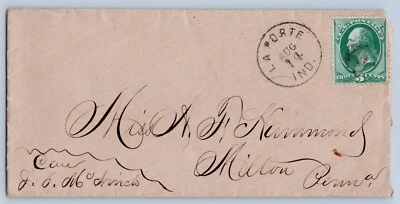 LA PORTE
AUG
14
IND.
U.S. POSTAGE
THREE CENTS
3
Miss A. F. Hammond
Milton
Penna
Care